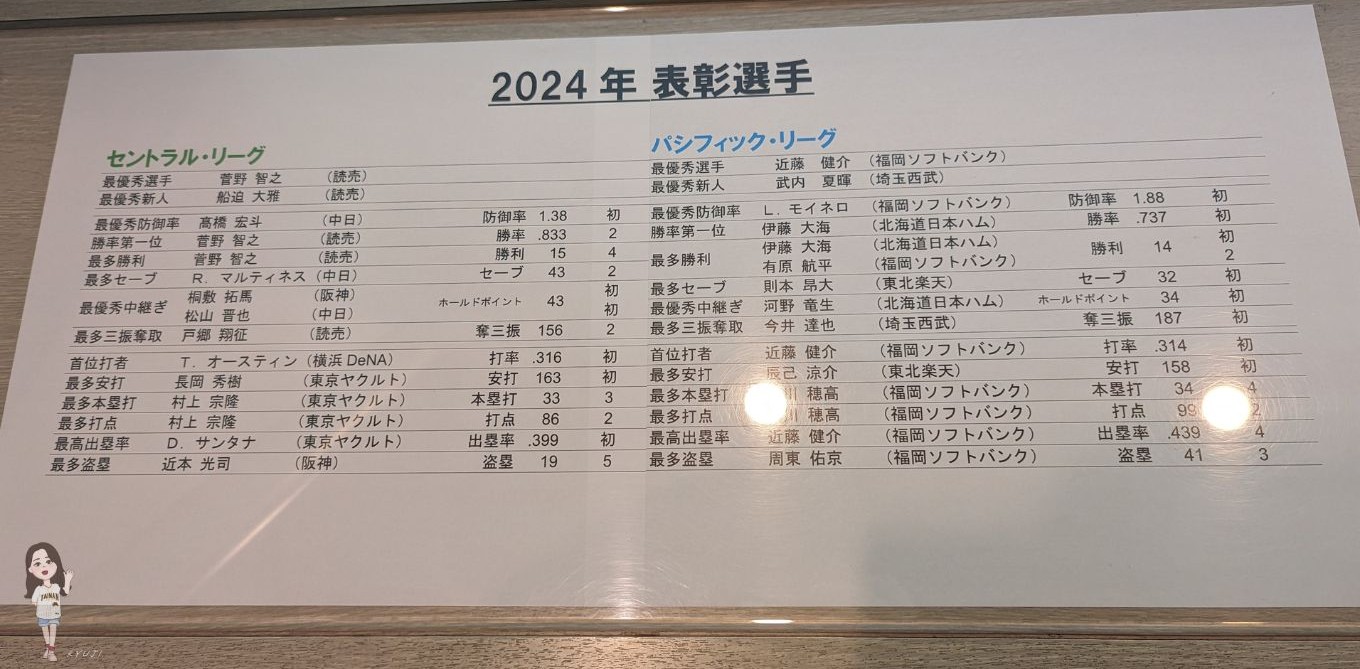 2024年 表彰選手
セントラル・リーグ
最優秀選手 菅野 智之 （読売）
最優秀新人 船迫 大雅 （読売）
最優秀防御率 髙橋 宏斗 （中日） 防御率 1.38 初
勝率第一位 菅野 智之 （読売） 勝率 .833 2
最多勝利 菅野 智之 （読売） 勝利 15 4
最多セーブ R. マルティネス（中日） セーブ 43 2
最優秀中継ぎ 桐敷 拓馬 （阪神） ホールドポイント 43 初
松山 晋也 （中日） 初
最多三振奪取 戸郷 翔征 （読売） 奪三振 156 2
首位打者 T. オースティン（横浜 DeNA） 打率 .316 初
最多安打 長岡 秀樹 （東京ヤクルト） 安打 163 初
最多本塁打 村上 宗隆 （東京ヤクルト） 本塁打 33 3
最多打点 村上 宗隆 （東京ヤクルト） 打点 86 2
最高出塁率 D. サンタナ （東京ヤクルト） 出塁率 .399 初
最多盗塁 近本 光司 （阪神） 盗塁 19 5
パシフィック・リーグ
最優秀選手 近藤 健介 （福岡ソフトバンク）
最優秀新人 武内 夏暉 （埼玉西武）
最優秀防御率 L. モイネロ （福岡ソフトバンク） 防御率 1.88 初
勝率第一位 伊藤 大海 （北海道日本ハム） 勝率 .737 初
最多勝利 伊藤 大海 （北海道日本ハム） 勝利 14 初
有原 航平 （福岡ソフトバンク） 2
最多セーブ 則本 昂大 （東北楽天） セーブ 32 初
最優秀中継ぎ 河野 竜生 （北海道日本ハム） ホールドポイント 34 初
最多三振奪取 今井 達也 （埼玉西武） 奪三振 187 初
首位打者 近藤 健介 （福岡ソフトバンク） 打率 .314 初
最多安打 辰己 涼介 （東北楽天） 安打 158 初
最多本塁打 川 穂高 （福岡ソフトバンク） 本塁打 34 4
最多打点 川 穂高 （福岡ソフトバンク） 打点 99 2
最高出塁率 近藤 健介 （福岡ソフトバンク） 出塁率 .439 4
最多盗塁 周東 佑京 （福岡ソフトバンク） 盗塁 41 3
RYUJI